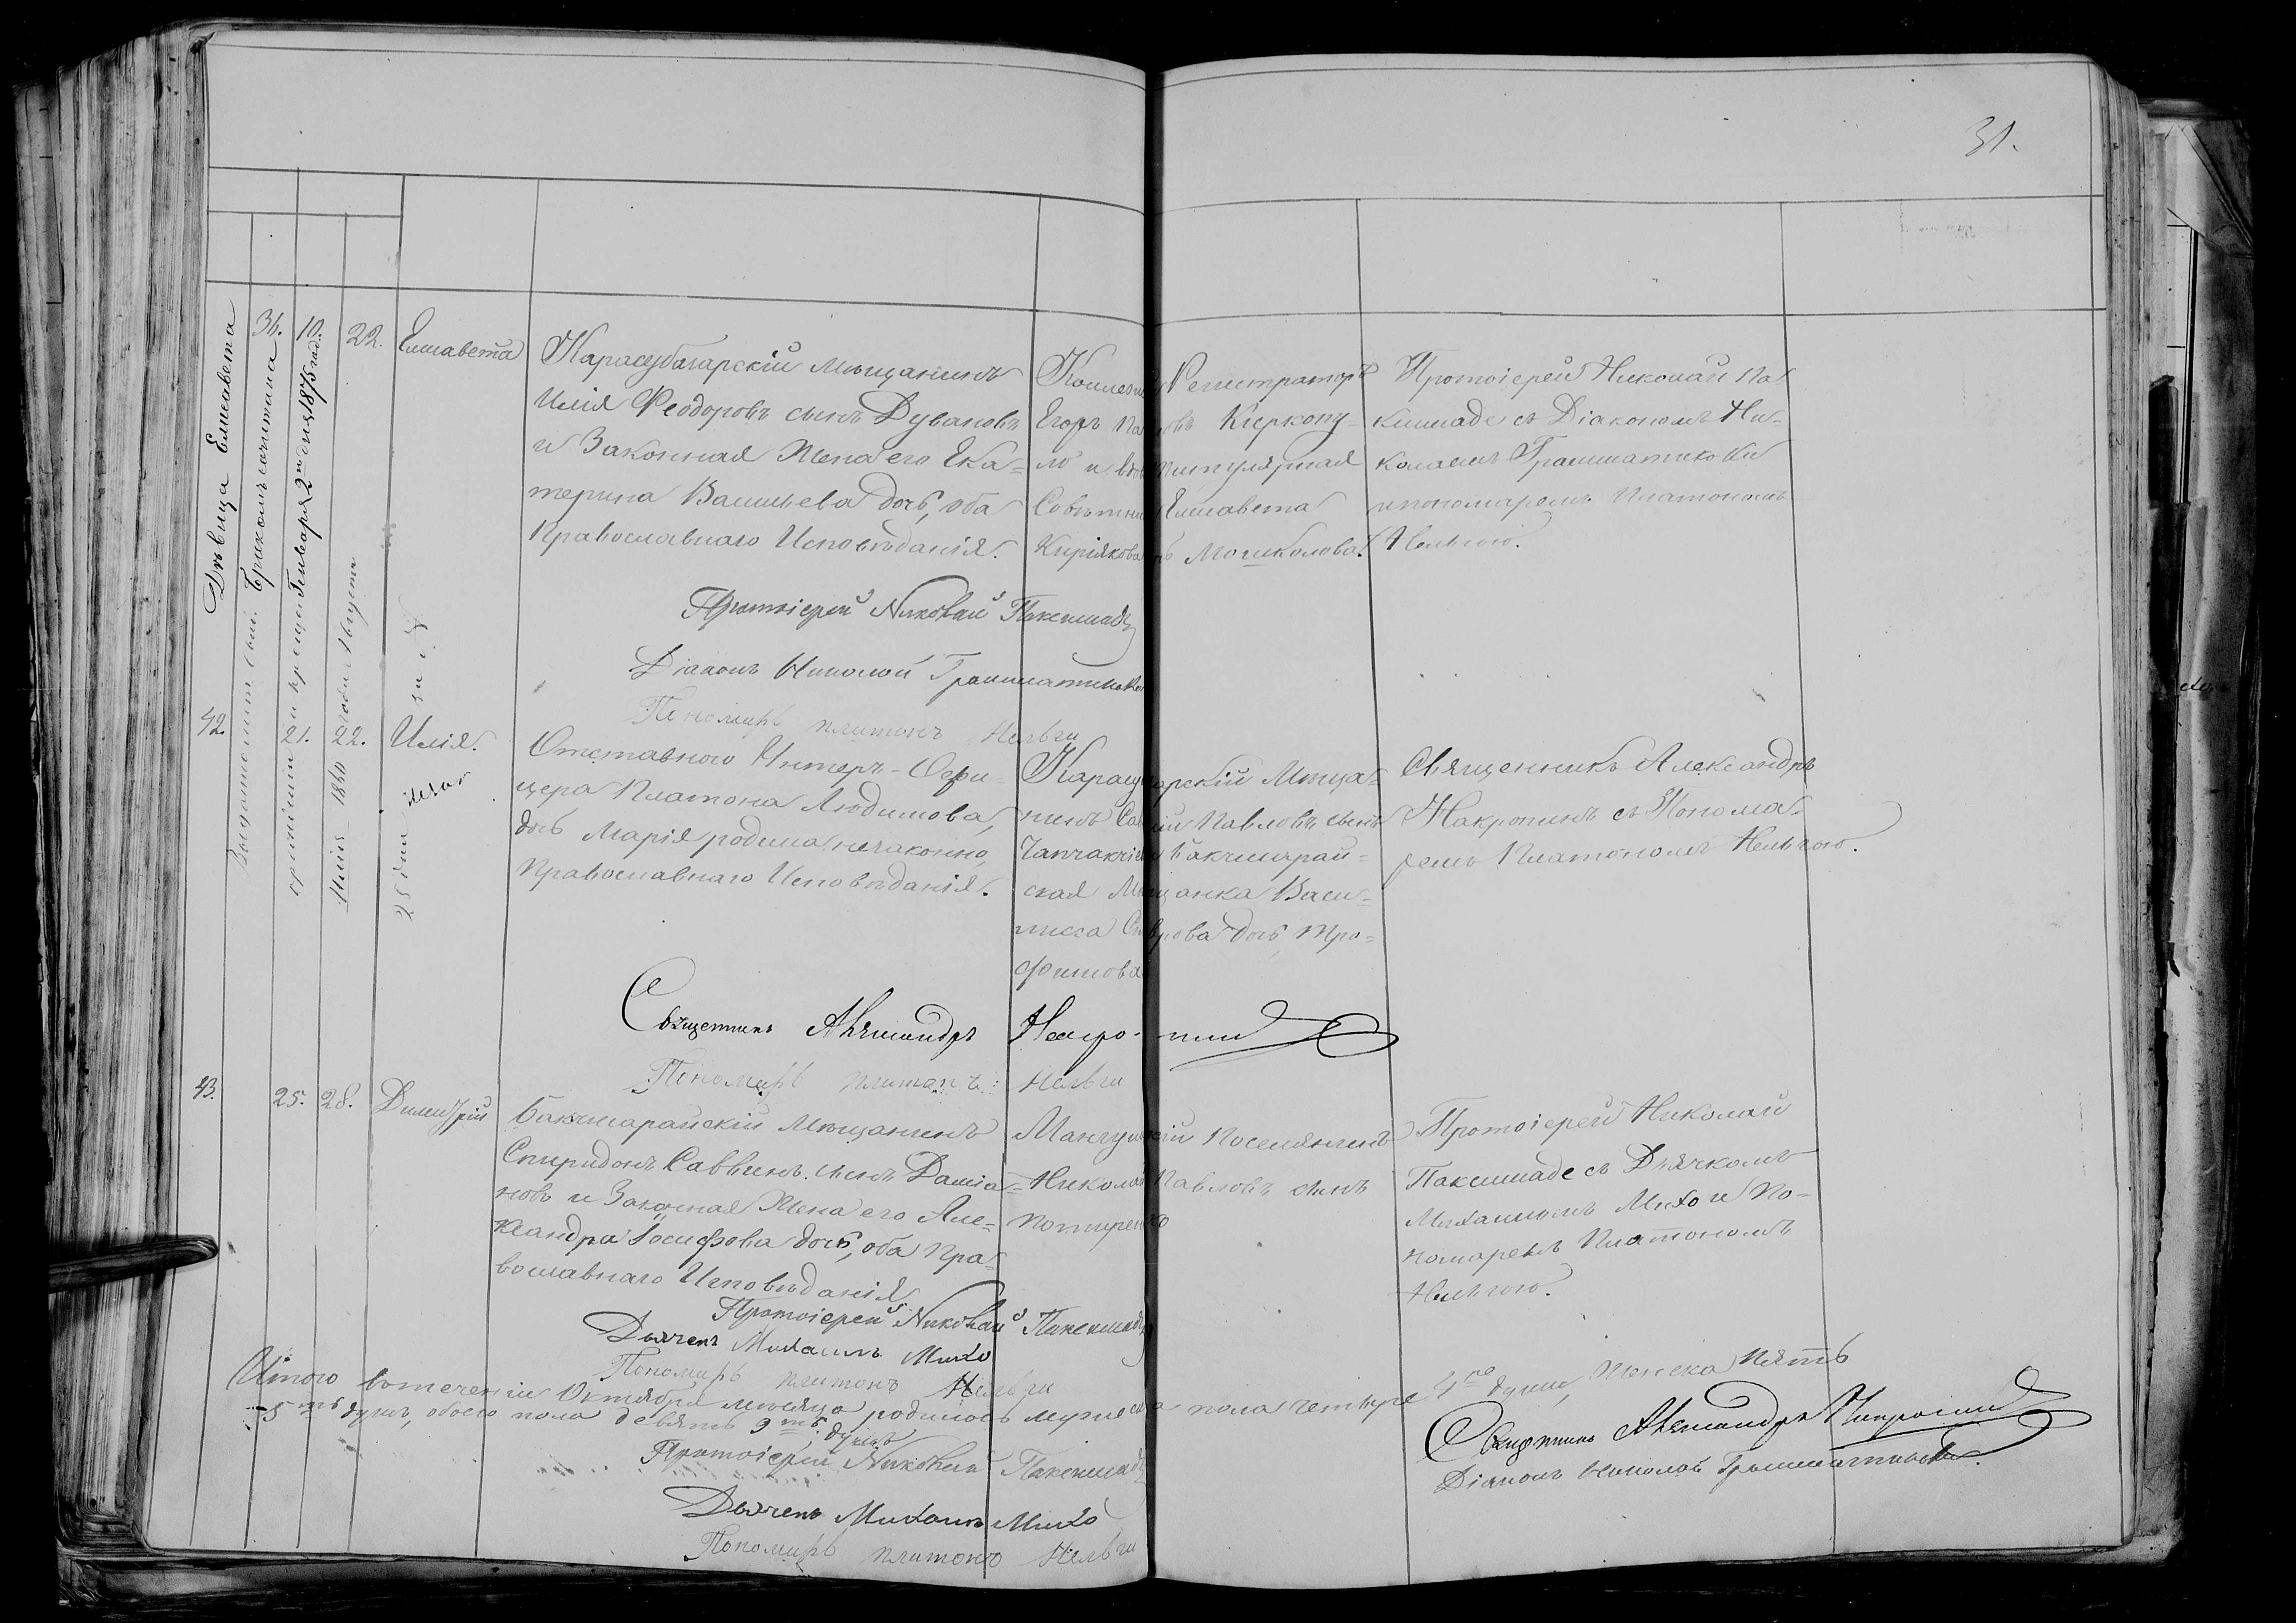 31.
Дѣвица Елисавета
бракомъ сочитана
Генваря 2го дня 1875 год.
36. 10. 22. Елисавета
Карасубазарскій Мѣщанинъ
Илія Феодоровъ сынъ Дувановъ
и Законная Жена его Ека=
терина Васильева дочь, оба
Православнаго Исповѣданія.
Регистраторъ
Егоръ Киркону-
ло и Титулярная
Елисавета
Кирiякова Мошколова.
Протоіерей Николай Па-
кишаде съ Діакономъ Ни-
колаемъ Грамматикоки
и пономаремъ Платономъ
Нельгою.
Протоіерей Николай Пакишаде
Діаконъ Николай Грамматикоки
Пономарь Платонъ Нельги
42. 21. 22. Илія.
Отставного Унтеръ-Офи=
цера Платона Людимова,
дочь Марія родила незаконно,
Православнаго Исповѣданія.
Мѣща=
нинъ Павловъ сынъ
Бакчисарай=
ская Мѣщанка Васи=
лисса дочь, Тро=
фимова
Священникъ Александръ
Накропинъ съ Понома=
ремъ Платономъ Нельгою.
Священникъ Александръ
Пономарь Платонъ Нельги
43. 25. 28. Димитрій
Бакчисарайскій Мѣщанинъ
Спиридонъ Саввинъ сынъ Даміа=
новъ и Законная Жена его Але=
ксандра Іосифова дочь, оба Пра=
вославнаго Исповѣданія
Мангушскій Поселянинъ
Николай Павловъ сынъ
Потиренко
Протоіерей Николай
Пакишаде съ Дьячкомъ
Михаиломъ Михо и По=
номаремъ Платономъ
Нельгою.
Протоіерей Николай Пакишаде
Дьячекъ Михаилъ Михо
Пономарь Платонъ Нельги
Итого въ теченіи Октября мѣсяца родилось мужеска пола четыре 4ре души, женска пять
-5ть душъ, обоего пола девять 9ть душъ
Протоіерей Николай Пакишаде
Священникъ Александръ
Діаконъ Николай Грамматикоки
Дьячекъ Михаилъ Михо
Пономарь Платонъ Нельги